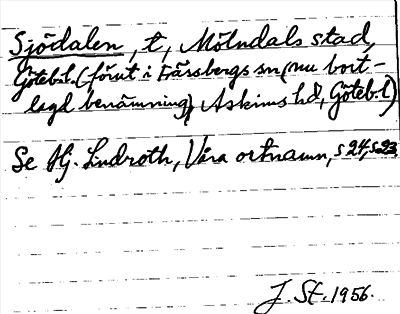 Sjödalen, t, Mölndals stad,
Göteb.l. (förut i Fässbergs sn (nu bort-
lagd benämning), Askims hd, Göteb.l.)
Se Hj. Lindroth, Våra ortnamn, s 24, s. 23
J. St. 1956.